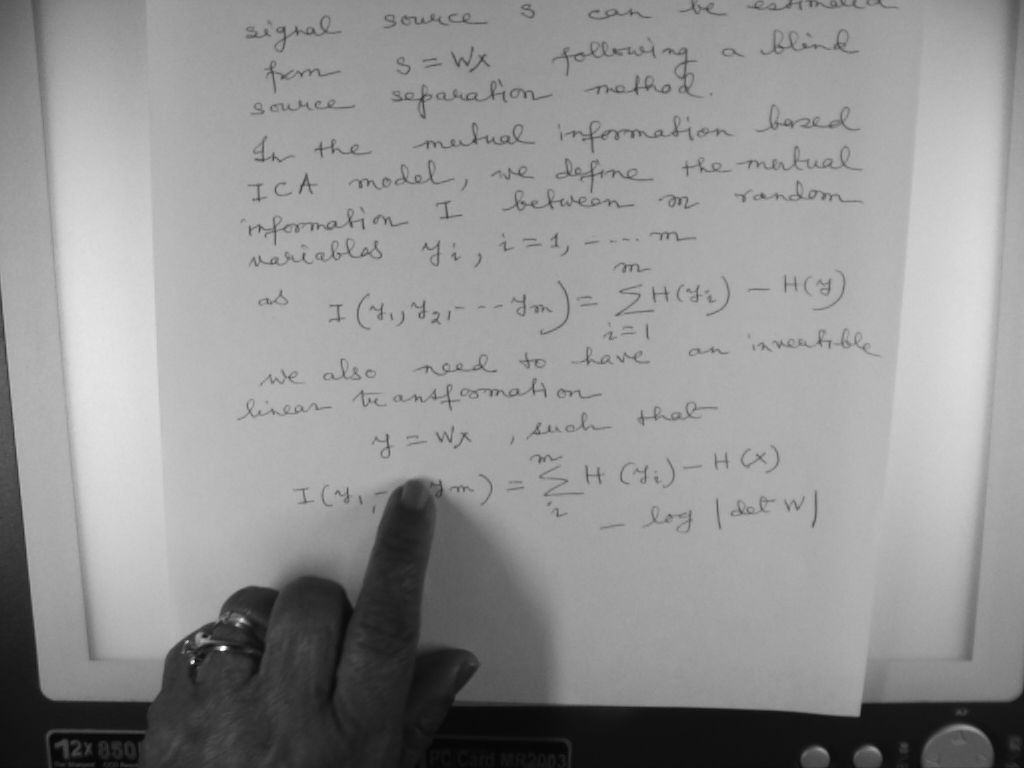 signal source s can be estimated
from s = Wx following a blind
source separation method.
In the mutual information based
ICA model, we define the mutual
information I between m random
variables yi, i = 1, ---- m
as I (y1, y2, --- ym) = m∑i=1 H(yi) - H(y)
we also need to have an invertible
linear transformation
y = Wx , such that
I (y1, - ym) = m∑i H (yi) - H (x)
- log |det W|
12x 850
PC Card MR2003